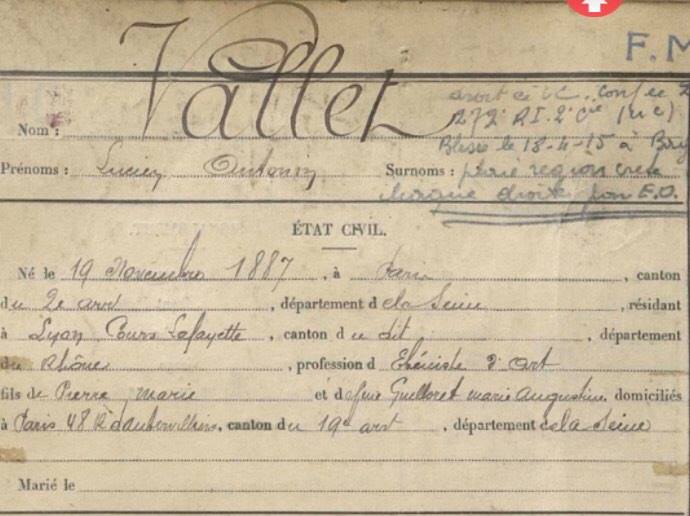 F. M
Vallet
Nom :
272e R.I. 2e Cie
Blessé le 18-4-15 à
Prénoms : Lucien Antonin Surnoms : plaie region
droite par E.O.
ÉTAT CIVIL.
Né le 19 Novembre 1887, à Paris, canton
du 2e arrt, département d e la Seine, résidant
à Lyon Cours Lafayette, canton d u dit, département
du Rhône, profession d Ebéniste d'art
fils de Pierre Marie et de feue Marie Augustine, domiciliés
à Paris 48 R d'aubervilliers, canton du 19e arrt, département de la Seine
Marié le